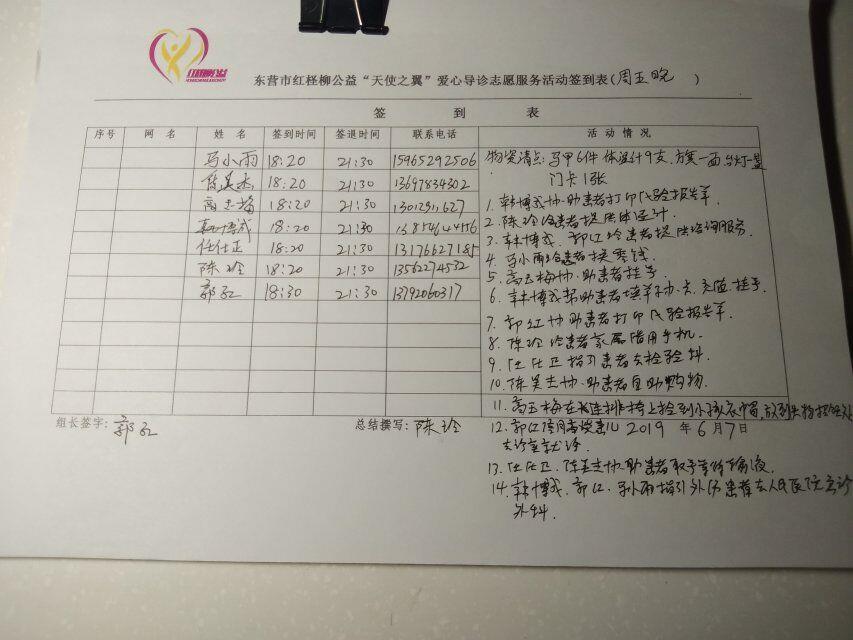 东营市红柽柳公益“天使之翼”爱心导诊志愿服务活动签到表(周五晚)
签 到 表
序号 网名 姓名 签到时间 签退时间 联系电话 活动情况
马小雨 18:20 21:30 15965292506
18:20 21:30 13697834302
18:20 21:30
韩博成 18:20 21:30
任仕正 18:20 21:30 13176627185
陈玲 18:20 21:30 13562274532
郭红 18:30 21:30 13792060317
物资清点:马甲6件 体温计9支
门卡1张
1. 韩博成协助患者打印化验报告单
2. 陈玲给患者提供体温计
3. 韩博成、郭红给患者提供咨询服务
4. 马小雨给患者换零钱
5. 协助患者挂号
6. 韩博成帮助患者填单子办卡、充值、挂号.
7. 郭红协助患者打印化验报告单.
8. 陈玲给患者家属借用手机.
9. 指引患者去检验科.
10. 协助患者自助购物.
11. 在连排椅上捡到小孩衣帽,放到失物招领处
12. 郭红
去诊室就诊
2019 年 6月7日
13. 协助患者取号等待输液.
14. 韩博成、郭红、马小雨指引外伤患者去人民医院急诊
外科.
组长签字: 郭红
总结撰写: 陈玲